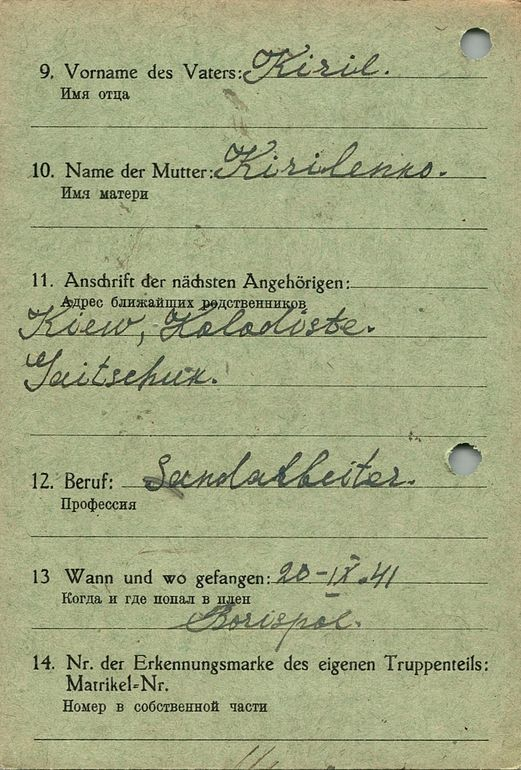 9. Vorname des Vaters: Kiril.
Имя отца
10. Name der Mutter: Kirilenko.
Имя матери
11. Anschrift der nächsten Angehörigen:
Адрес ближайших родственников
Kiew, Kolodiste.
Gaitschuk.
12. Beruf: Landarbeiter.
Профессия
13 Wann und wo gefangen: 20-IX.41
Когда и где попал в плен
Borispol.
14. Nr. der Erkennungsmarke des eigenen Truppenteils:
Matrikel-Nr.
Номер в собственной части